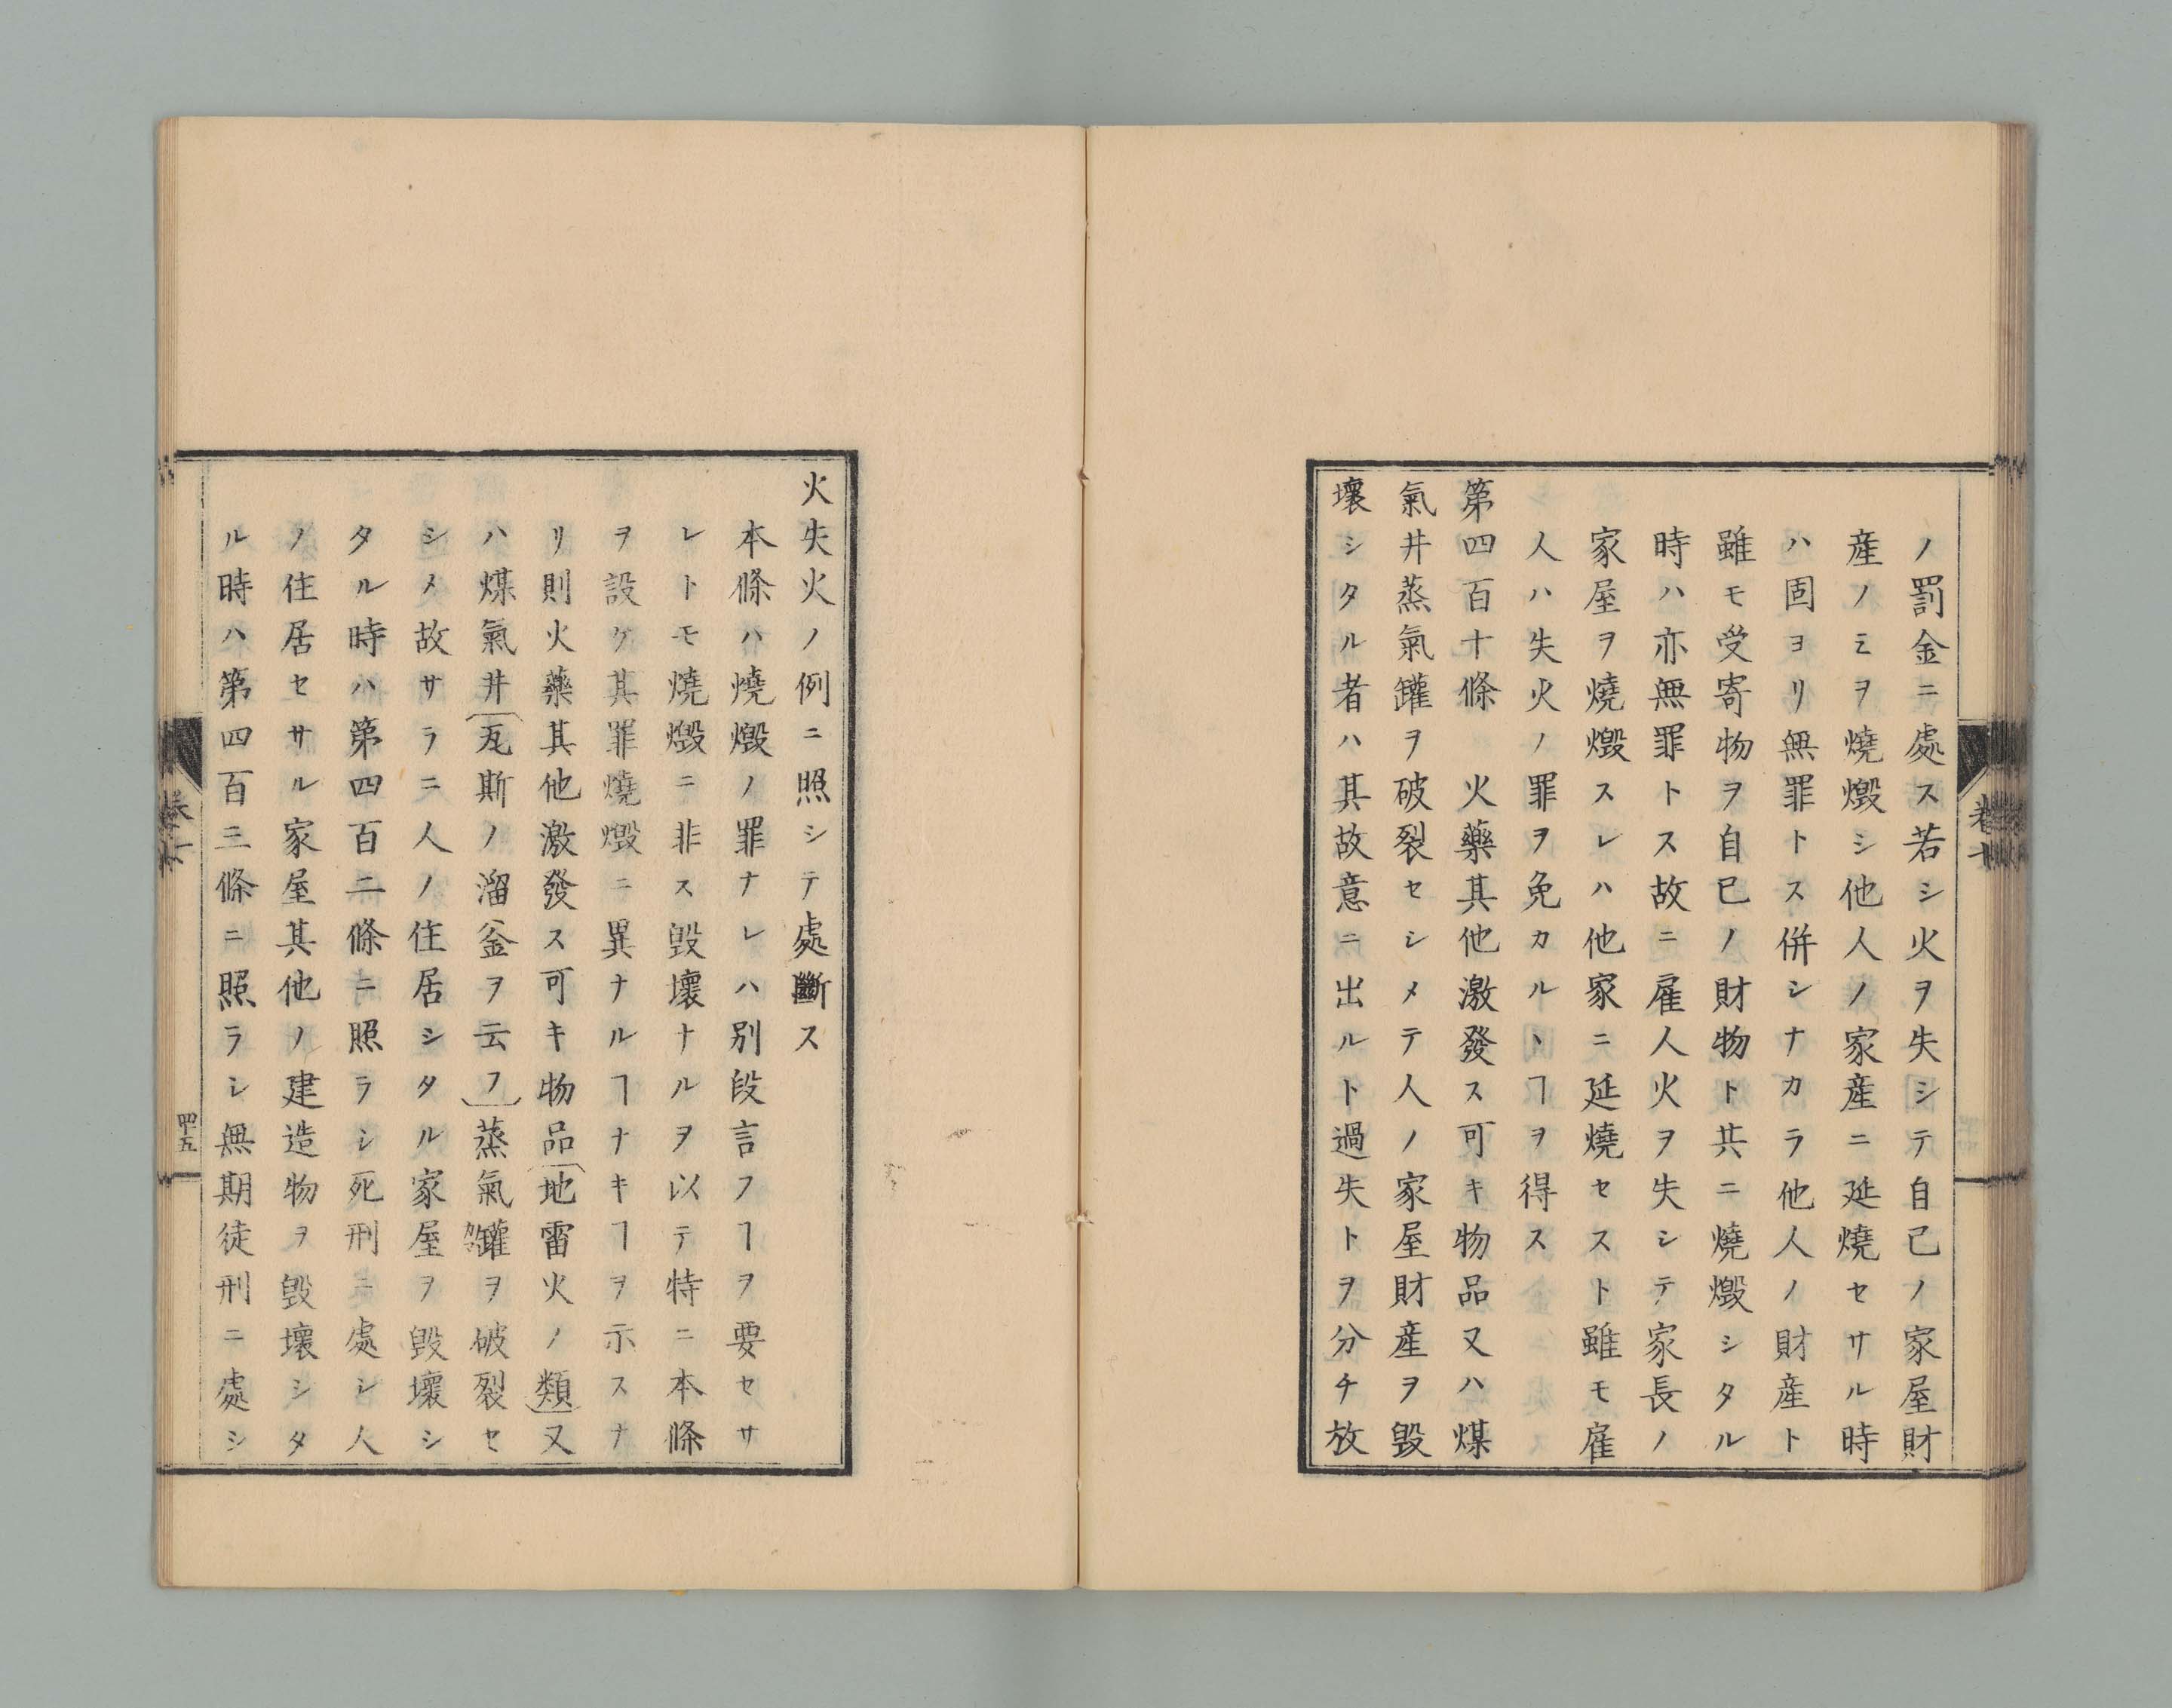 ノ罰金ニ處ス若シ火ヲ失シテ自己ノ家屋財
産ノミヲ燒燬シ他人ノ家産ニ延燒セサル時
ハ固ヨリ無罪トス併シナカラ他人ノ財産ト
雖モ受寄物ヲ自己ノ財物ト共ニ燒燬シタル
時ハ亦無罪トス故ニ雇人火ヲ失シテ家長ノ
家屋ヲ燒燬スレハ他家ニ延燒セスト雖モ雇
人ハ失火ノ罪ヲ免カルヽヿヲ得ス
第四百十條 火藥其他激發ス可キ物品又ハ煤
氣井蒸氣罐ヲ破裂セシメテ人ノ家屋財産ヲ毀
壞シタル者ハ其故意ニ出ルト過失トヲ分チ放
火失火ノ例ニ照シテ處斷ス
本條ハ燒燬ノ罪ナレハ別段言フヿヲ要セサ
レトモ燒燬ニ非ス毀壞ナルヲ以テ特ニ本條
ヲ設ケ其罪燒燬ニ異ナルヿナキヿヲ示スナ
リ則火藥其他激發ス可キ物品(地雷火ノ類)又
ハ煤氣井(瓦斯ノ溜釜ヲ云フ)蒸氣罐ヲ破裂セ
シメ故サラニ人ノ住居シタル家屋ヲ毀壞シ
タル時ハ第四百二條ニ照ラシ死刑ニ處シ人
ノ住居セサル家屋其他ノ建造物ヲ毀壞シタ
ル時ハ第四百三條ニ照ラシ無期徒刑ニ處シ
四十五